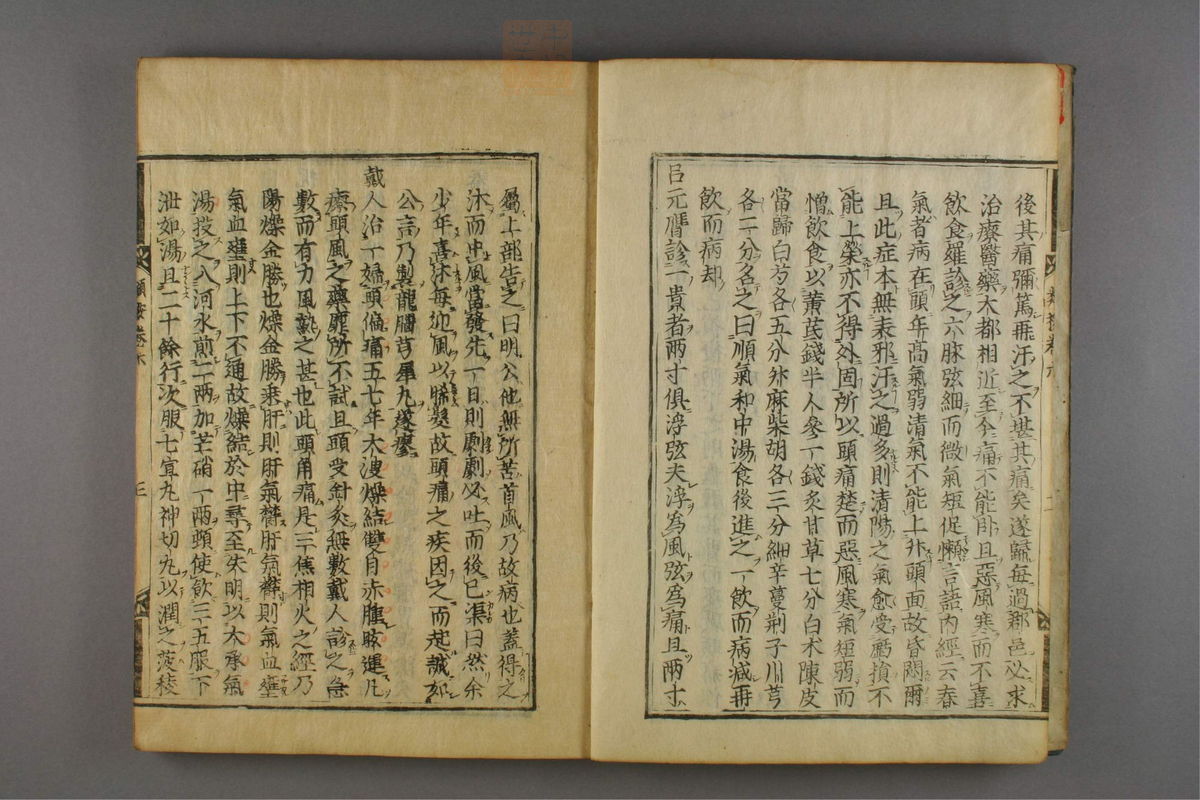 後其痛彌篤再汗之不堪其痛矣遂歸每過郡邑必求
治療醫藥大都相近至今痛不能卧且惡風寒而不喜
飲食羅診之六脉弦細而微氣短促懶言語内經云春
氣者病在頭年高氣弱清氣不能上升頭面故昏悶爾
且此症本無表邪汗之過多則清陽之氣愈受虧損不
能上榮亦不得外固所以頭痛楚而惡風寒氣短弱而
憎飲食以黄芪錢半人參一錢炙甘草七分白朮陳皮
當歸白芍各五分升麻柴胡各三分細辛蔓荆子川芎
各二分名之曰順氣和中湯食後進之一飲而病減再
飲而病却
吕元膺診一貴者兩寸俱浮弦夫浮為風弦為痛且兩寸
屬上部告之曰明公他無所苦首風乃故病也蓋得之
沐而中風當發先一日則劇劇必吐而後已渠曰然余
少年喜沐每迎風以晞髮故頭痛之疾因之而起誠如
公言乃製龍腦芎犀丸遂瘳
戴人治一婦頭偏痛五七年大溲燥結雙目赤腫眩運凡
療頭風之藥靡所不試且頭受針灸無數戴人診之急
數而有力風熱之甚也此頭角痛是三焦相火之經乃
陽燥金勝也燥金勝乘肝則肝氣欝肝氣欝則氣血壅
氣血壅則上下不通故燥結於中尋至失明以大承氣
湯投之入河水煎二兩加芒硝一兩頓使飲三五服下
泄如湯且二十餘行次服七宣丸神切丸以潤之菠稜
類按卷六
三